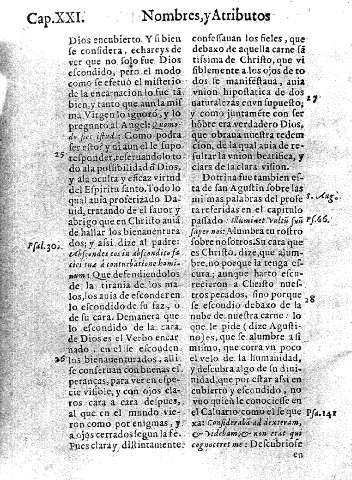 Cap. XXI.
Nombres, y Atributos
Dios encubierto. Y si bien
se considera, echareys de
ver que no solo fue Dios
escondido, pero el modo
como se efetuò el misterio
de la encarnacion lo fue tã
bien, y tanto que aun la mis
ma Virgen lo ignorò, y lo
preguntò al Angel: Quomo
do fiet istud: Como podra
ser esto? y ni aun el le supo
responder, refiriendolo to
do a la posibilidad d̃ Dios,
y a la oculta y eficaz virtud
del Espiritu santo. Todo lo
qual auia profetizado Da-
uid, tratando de el fauor y
abrigo que en Christo auiã
de hallar los bienauentura
dos; y assi dize al padre:
Abscondes eos in abscondito fa
ciei tuæ à conturbatione homi
num: Que defendiendolos
de la tirania de los ma-
los, los auia de esconder en
lo escondido de su faz, o
de su cara. De manera que
lo escondido de la cara
de Dios es el Verbo encar
nado, en el se esconden
los bienauenturados, alli
se conseruan con buenas es
peranças, para ver en espe
cie visible, y con ojos cla-
ros cara a cara despues,
al que en el mundo vie-
ron como por enigmas, y
a ojos cerrados segun la fe.
Pues clara y distintamente
25
Psal. 30.
26
confessauan los fieles, que
debaxo de aquella carne sã
tissima de Christo, que vi
siblemente a los ojos de to
dos se manifestaua, auia
vnion hipostatica de dos
naturalezas en vn supuesto;
y como juntamente con ser
hõbre era verdadero Dios,
que obraua nuestra reden
cion, de la qual auia de re-
sultar la vnion beatifica, y
clars de la clara vision.
Dotrina fue tambien es
ta de san Agustin sobre las
mismas palabras del profe
ta referidas en el capitulo
passado: Illuminet vultũ suũ
super nos: Alumbra tu rostro
sobre nosotros. Su cara que
es Christo, dize, que alum-
bre, no porque la tenga es-
cura; aunque harto escu-
recieron a Christo nues-
tros pecados, sino porque
se escondio debaxo de la
nube de nuestra carne: lo
que le pide (dize Agusti-
no) es, que se alumbre a si
mismo, que corra vn poco
el velo de la humanidad,
y descubra algo de su diui-
nidad, que por estar assi en
cubierto y escondido, no
vuo quien le conociesse en
el Caluario como el se que
xa: Considerabã ad dexteram,
& videbam, & non erat qui
cognosceret me: Descubriose
en
27
S. Aug.
Ps. 66.
28
Psa. 141